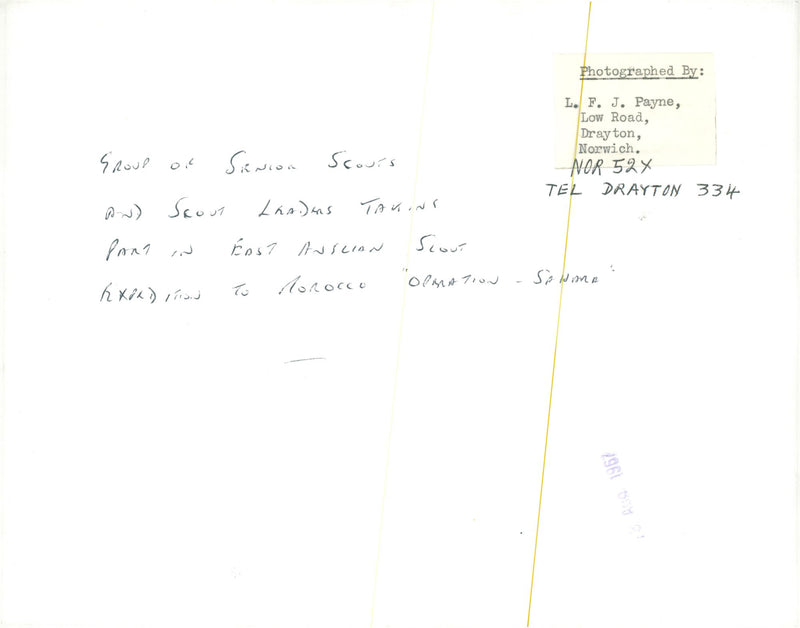 Photographed By:
L. F. J. Payne,
Low Road,
Drayton,
Norwich.
NOR 52X
TEL DRAYTON 334
GROUP OF SENIOR SCOUTS
AND SCOUT LEADERS TAKING
PART IN EAST ANGLIAN SCOUT
EXPEDITION TO MOROCCO "OPERATION - SAHARA"
AUG 1967